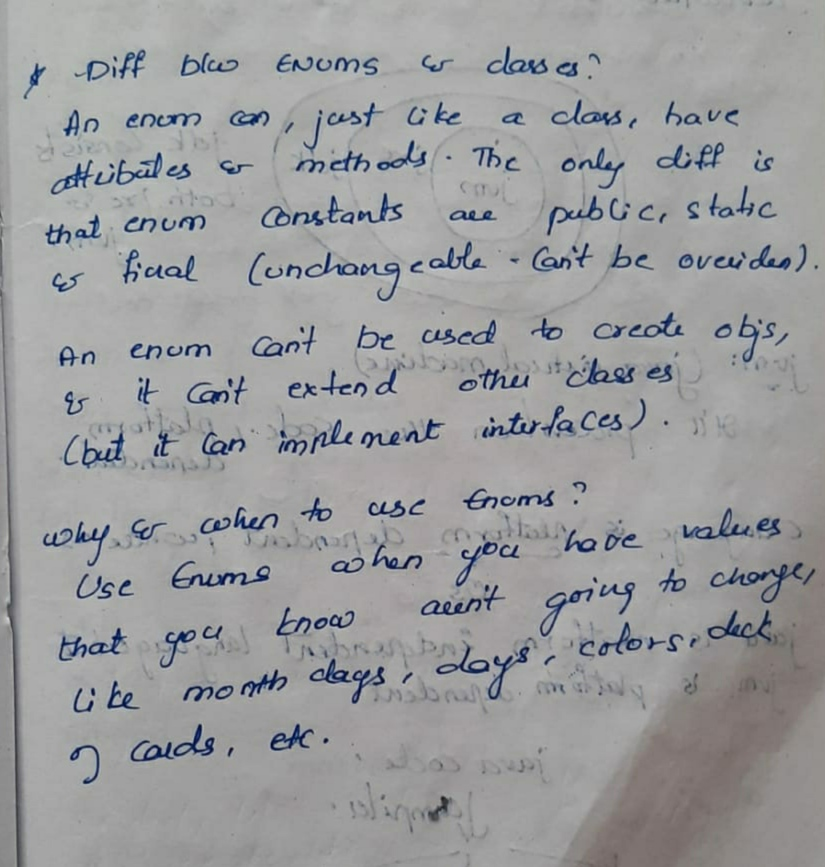 * Diff b/w Enums & classes?
An enum can, just like a class, have
attributes & methods. The only diff is
that enum constants are public, static
& final (unchangeable - Can't be overiden).
An enum can't be used to create objs,
& it can't extend other classes
(but it can implement interfaces).
Why & when to use Enums?
Use Enums when you have values
that you know aren't going to change,
like month days, days, colors, deck
of cards, etc.